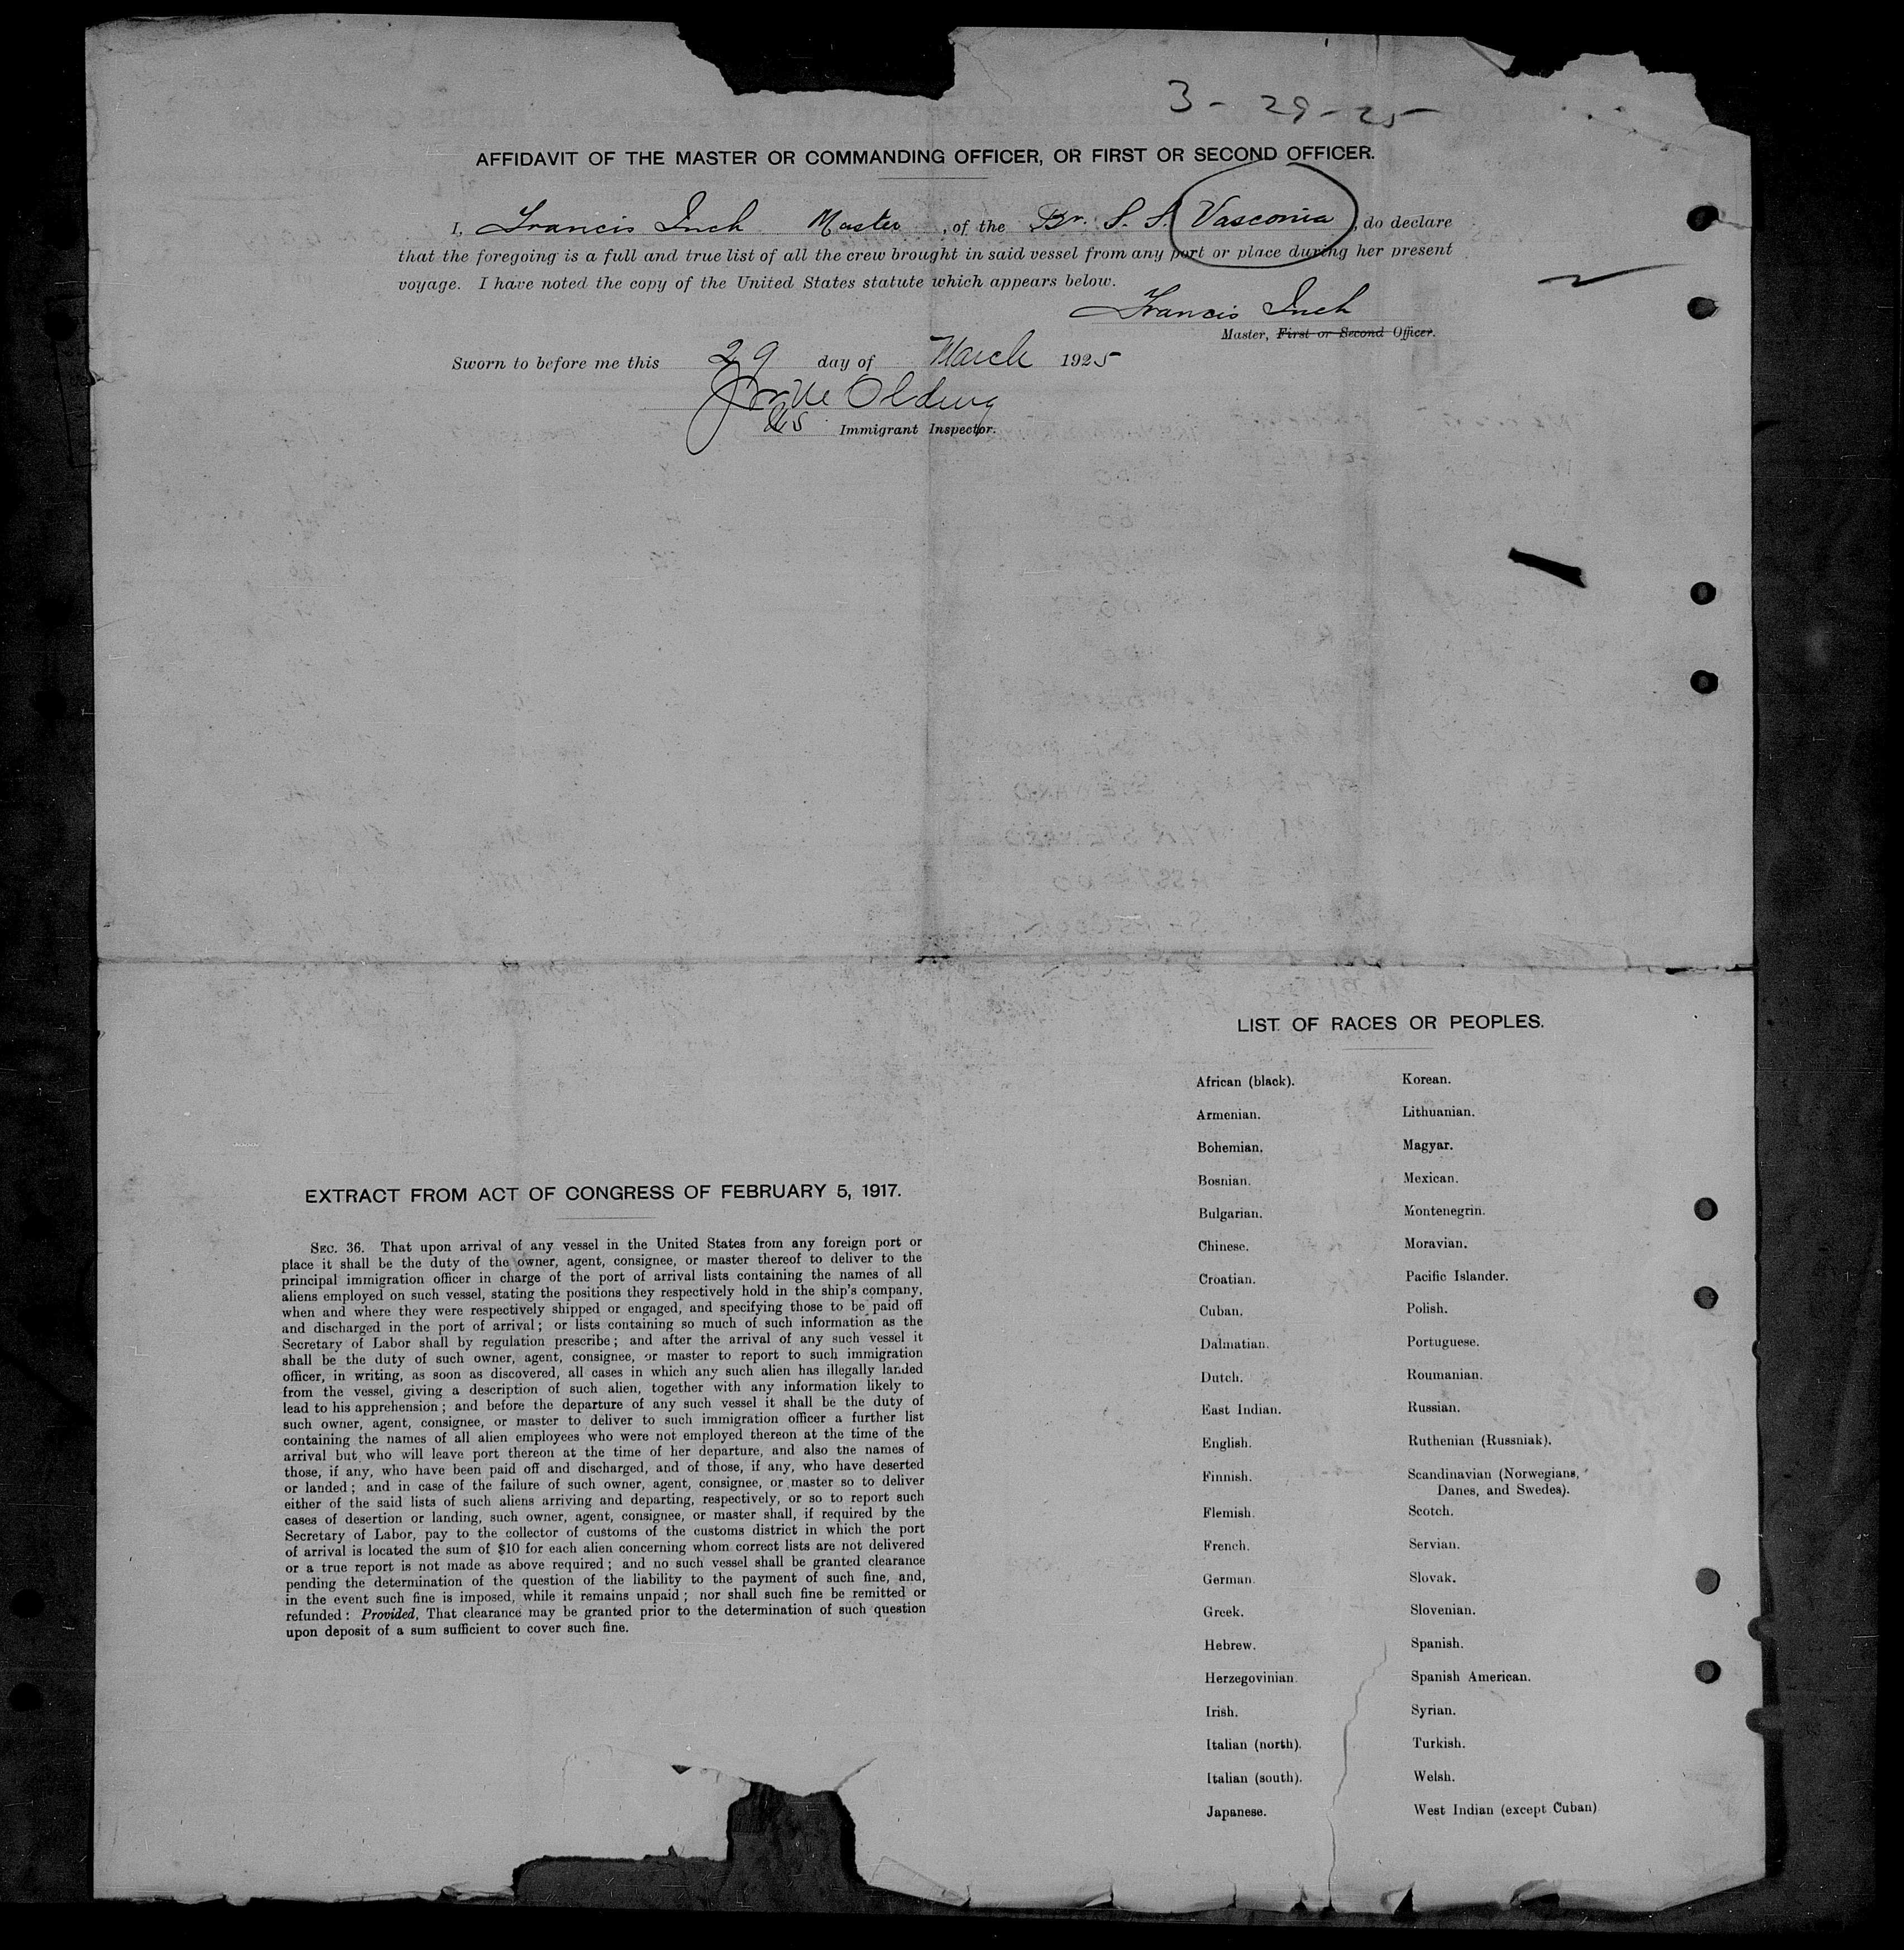 3 - 29 - 25
AFFIDAVIT OF THE MASTER OR COMMANDING OFFICER, OR FIRST OR SECOND OFFICER.
I, Francis Inch Master, of the Br. S. S. Vasconia, do declare
that the foregoing is a full and true list of all the crew brought in said vessel from any port or place during her present
voyage. I have noted the copy of the United States statute which appears below.
Francis Inch
Master, First or Second Officer.
Sworn to before me this 29 day of March 1925
Olding
US Immigrant Inspector.
EXTRACT FROM ACT OF CONGRESS OF FEBRUARY 5, 1917.
SEC. 36. That upon arrival of any vessel in the United States from any foreign port or
place it shall be the duty of the owner, agent, consignee, or master thereof to deliver to the
principal immigration officer in charge of the port of arrival lists containing the names of all
aliens employed on such vessel, stating the positions they respectively hold in the ship's company,
when and where they were respectively shipped or engaged, and specifying those to be paid off
and discharged in the port of arrival; or lists containing so much of such information as the
Secretary of Labor shall by regulation prescribe; and after the arrival of any such vessel it
shall be the duty of such owner, agent, consignee, or master to report to such immigration
officer, in writing, as soon as discovered, all cases in which any such alien has illegally landed
from the vessel, giving a description of such alien, together with any information likely to
lead to his apprehension; and before the departure of any such vessel it shall be the duty of
such owner, agent, consignee, or master to deliver to such immigration officer a further list
containing the names of all alien employees who were not employed thereon at the time of the
arrival but who will leave port thereon at the time of her departure, and also the names of
those, if any, who have been paid off and discharged, and of those, if any, who have deserted
or landed; and in case of the failure of such owner, agent, consignee, or master so to deliver
either of the said lists of such aliens arriving and departing, respectively, or so to report such
cases of desertion or landing, such owner, agent, consignee, or master shall, if required by the
Secretary of Labor, pay to the collector of customs of the customs district in which the port
of arrival is located the sum of $10 for each alien concerning whom correct lists are not delivered
or a true report is not made as above required; and no such vessel shall be granted clearance
pending the determination of the question of the liability to the payment of such fine, and,
in the event such fine is imposed, while it remains unpaid; nor shall such fine be remitted or
refunded: Provided, That clearance may be granted prior to the determination of such question
upon deposit of a sum sufficient to cover such fine.
LIST OF RACES OR PEOPLES.
African (black).
Armenian.
Bohemian.
Bosnian.
Bulgarian.
Chinese.
Croatian.
Cuban.
Dalmatian.
Dutch.
East Indian.
English.
Finnish.
Flemish.
French.
German.
Greek.
Hebrew.
Herzegovinian.
Irish.
Italian (north).
Italian (south).
Japanese.
Korean.
Lithuanian.
Magyar.
Mexican.
Montenegrin.
Moravian.
Pacific Islander.
Polish.
Portuguese.
Roumanian.
Russian.
Ruthenian (Russniak).
Scandinavian (Norwegians,
Danes, and Swedes).
Scotch.
Servian.
Slovak.
Slovenian.
Spanish.
Spanish American.
Syrian.
Turkish.
Welsh.
West Indian (except Cuban)